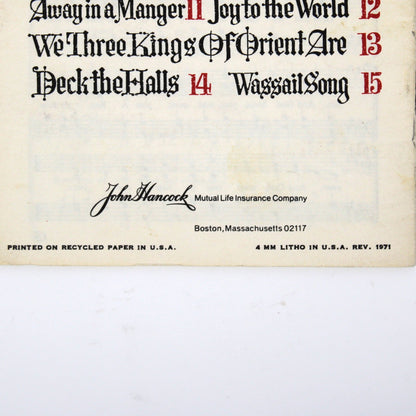 Away in a Manger 11 Joy to the World 12
We Three Kings Of Orient Are 13
Deck the Halls 14 Wassail Song 15
John Hancock Mutual Life Insurance Company
Boston, Massachusetts 02117
PRINTED ON RECYCLED PAPER IN U.S.A. 4 MM LITHO IN U.S.A. REV. 1971